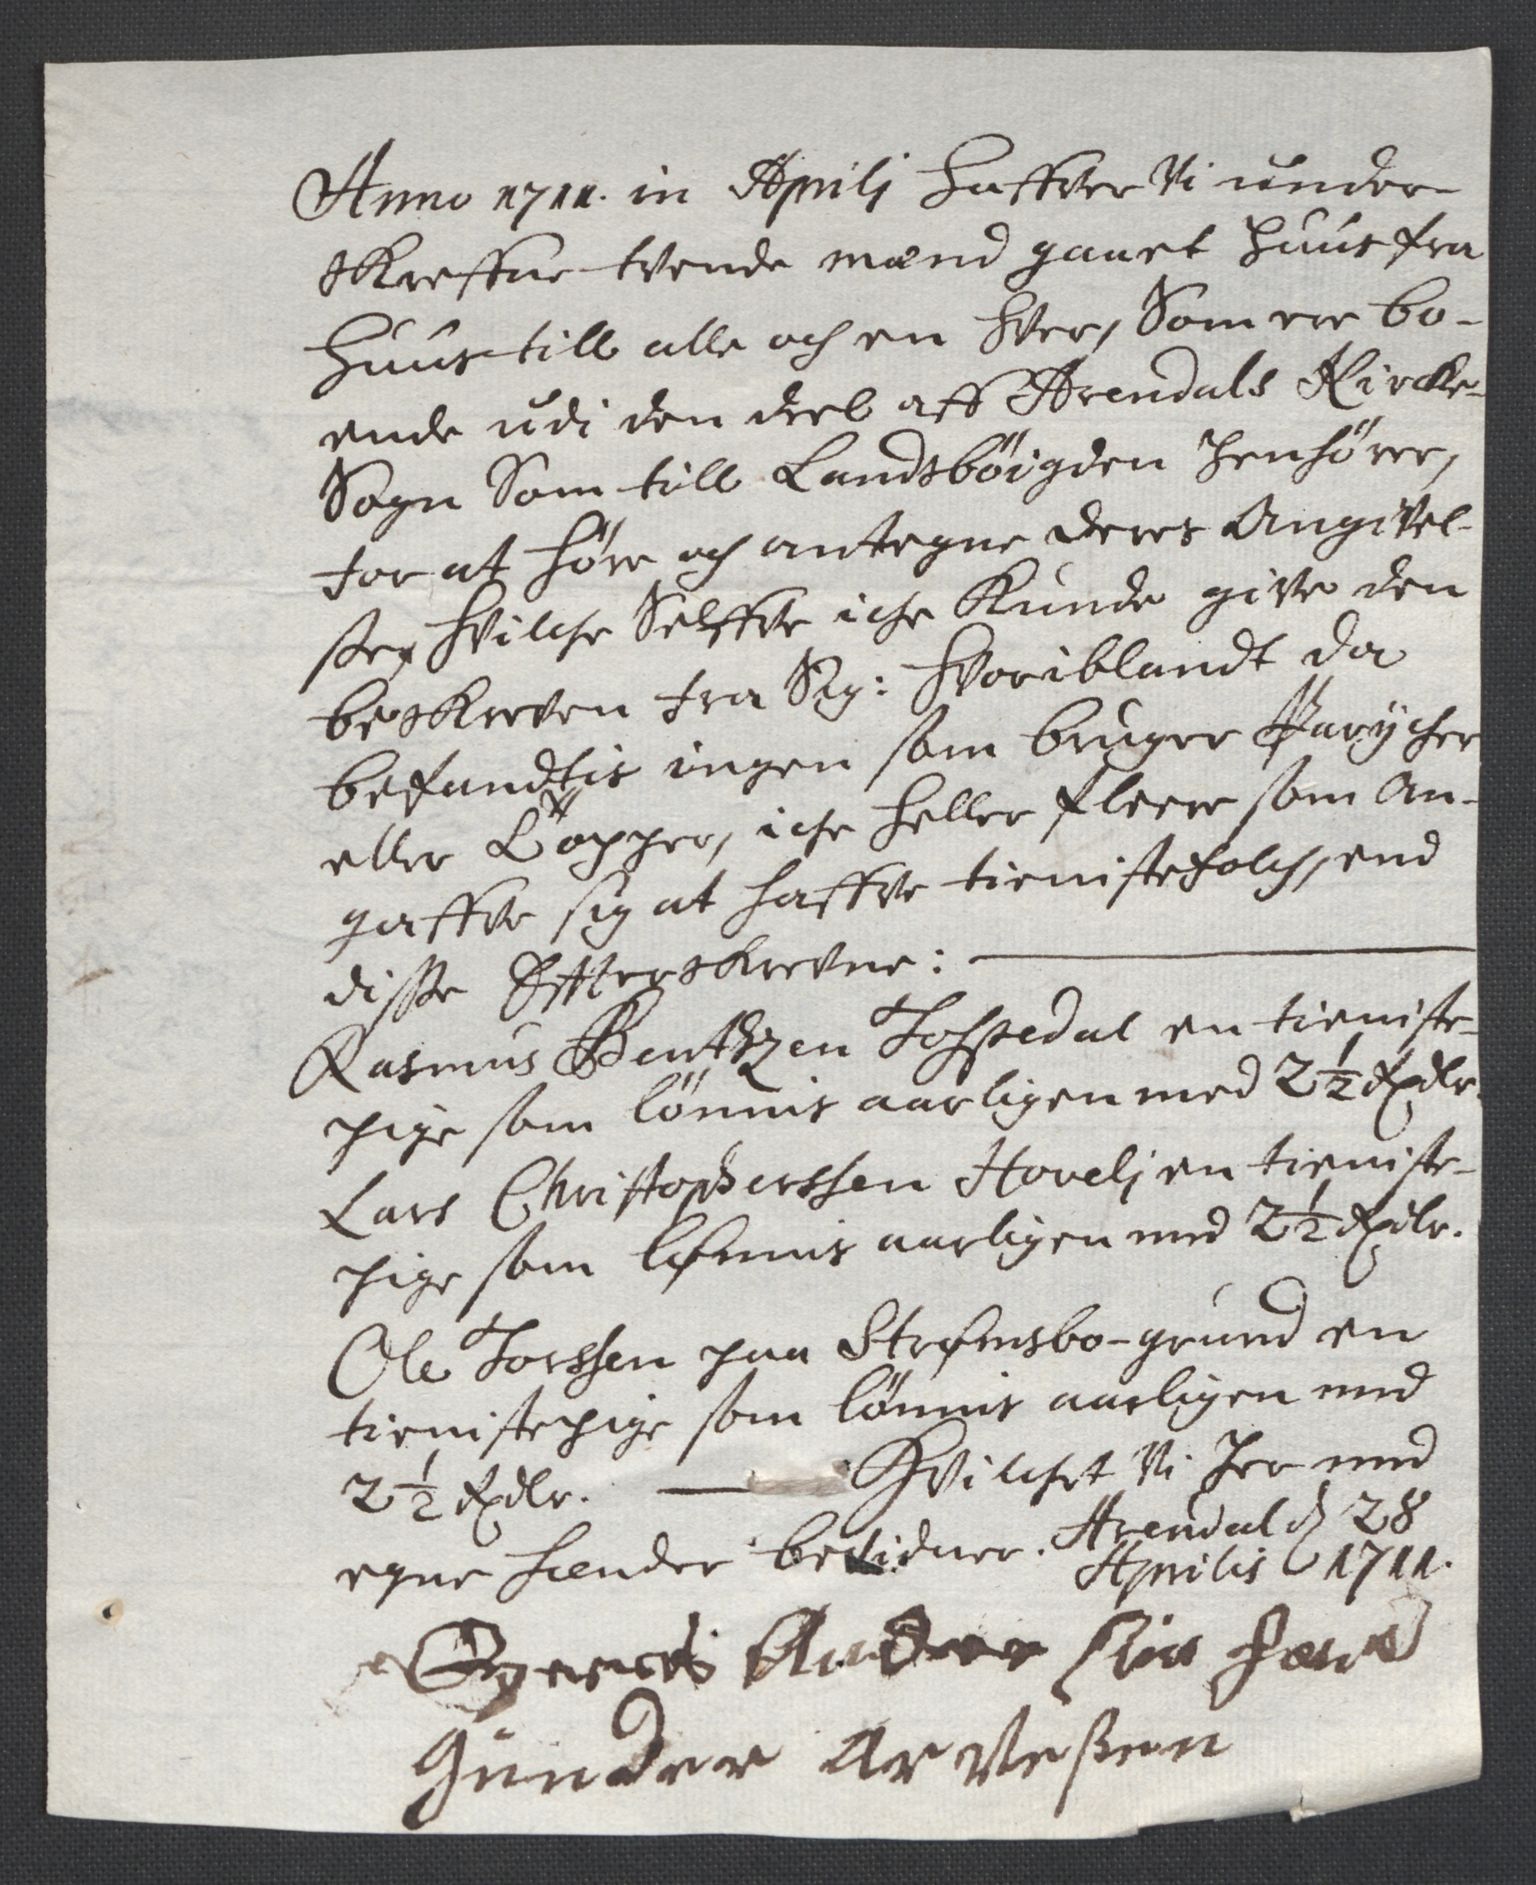 Anno 1711. in Aprilj haffver Vi under-
skreffne tvende mænd gaaet huus fra
huus till alle och en hver, Som ere bo-
ende udi den deel aff Arendals Kircke-
Sogn Som till Landsböigden henhörer,
for at höre och antegne deres Angivel-
ser, hvilche Selffve iche kunde give den
beskreven fra Sig: hvoriblandt da
befandtis ingen som bruger Parÿcher
eller Töpper, iche heller fleere som An-
gaffve sig at haffve tienistefolch, end
disse Efterskrevne:
Rasmus Bentzen Tossedal en tieniste-
pige som lönnis aarligen med 2½ Rdlr.
Lars Christopherssen Hovelj en tieniste-
pige som lønnis aarligen med 2½ Rdlr.
Ole Torssen paa Strømsbo-grund en
tienistepige som lönnis aarligen med
2½ Rdlr. Hvilchet Vi her med
egne hænder betidner. Arendal d 28
Aprilis 1711.
Gunder